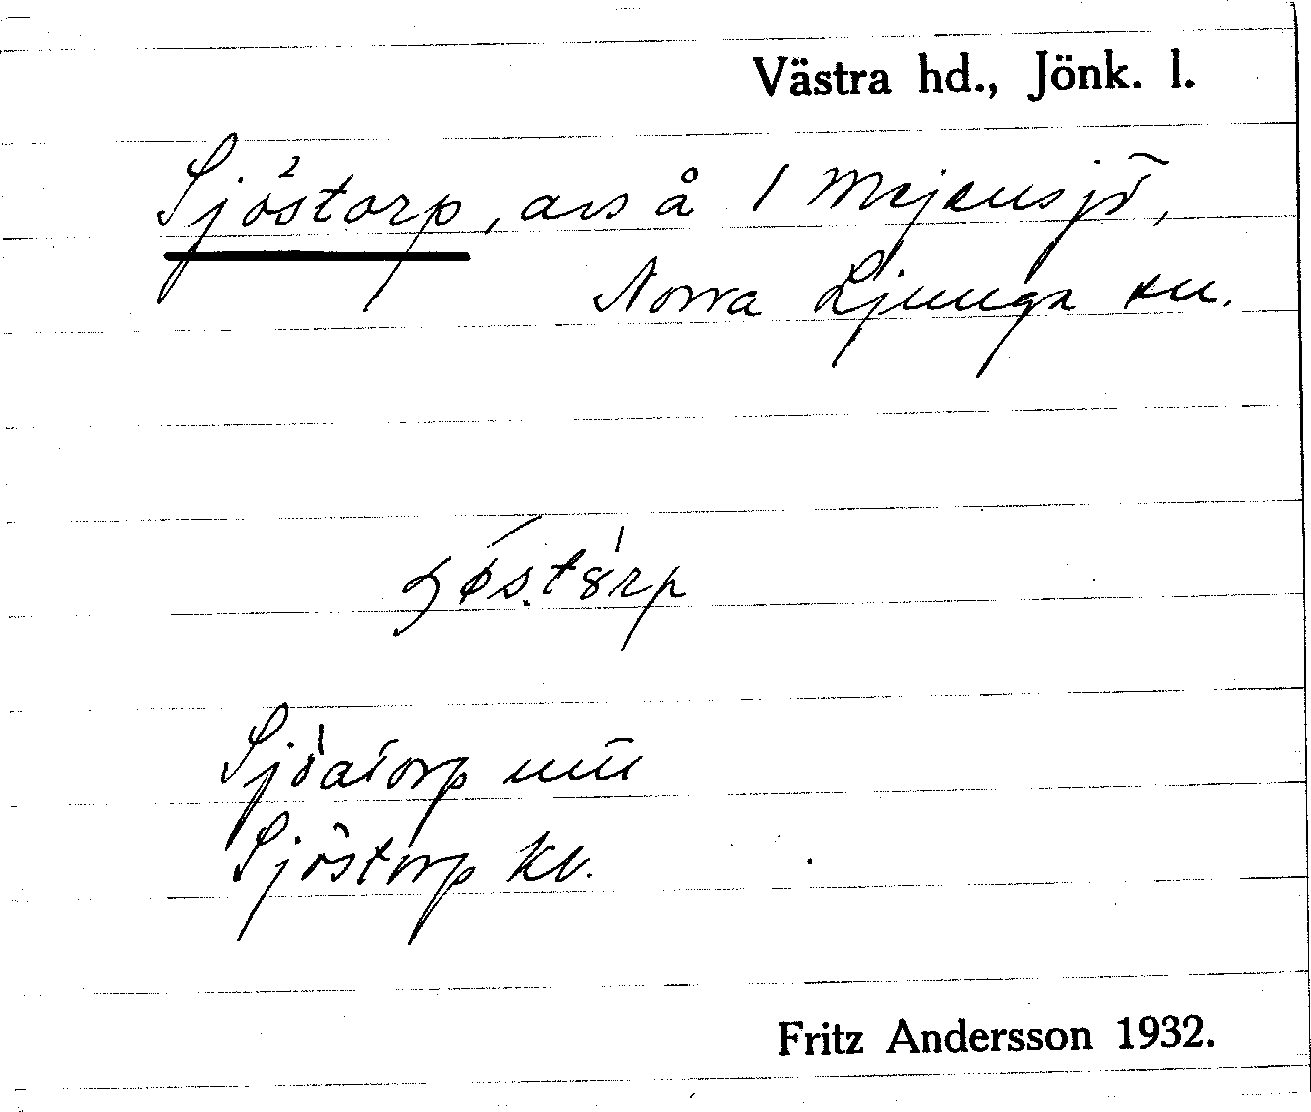 Västra hd., Jönk. l.
Sjöstorp, avs å 1 Mejensjö,
Norra Ljunga sn.
Sjöatorp
Sjöstorp kv.
Fritz Andersson 1932.